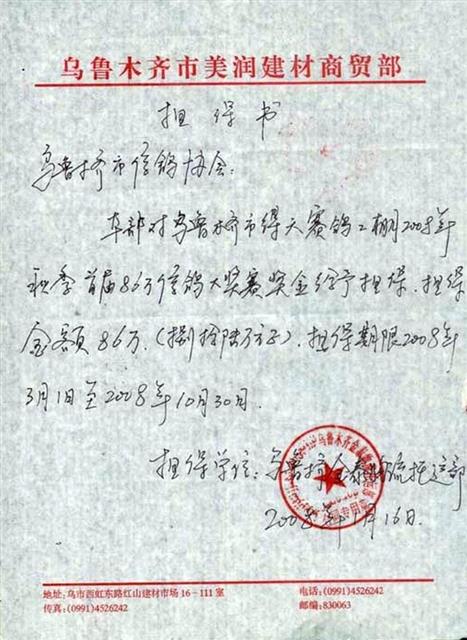 乌鲁木齐市美润建材商贸部
担保书
乌鲁木齐市信鸽协会:
本部对乌鲁木齐市得天赛鸽公棚2008年
秋季首届86万信鸽大奖赛奖金给予担保.担保
金额86万.(捌拾陆万元).担保期限2008年
3月1日至2008年10月30日.
担保单位:乌鲁木齐金泰物流托运部
2008年 月16日.
地址:乌市西虹东路红山建材市场16-111室
电话:(0991)4526242
传真:(0991)4526242
邮编:830063